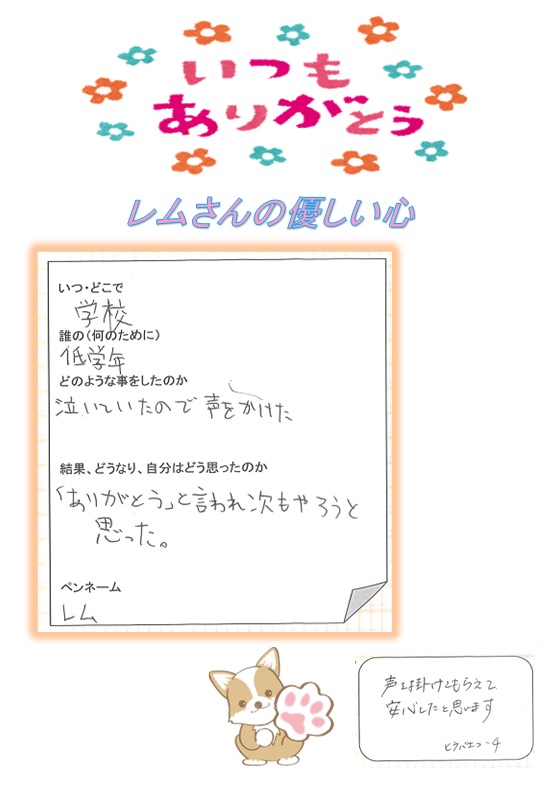 いつも
ありがとう
レムさんの優しい心
いつ・どこで
学校
誰の(何のために)
低学年
どのような事をしたのか
泣いていたので声をかけた
結果、どうなり、自分はどう思ったのか
「ありがとう」と言われ次もやろうと
思った。
ペンネーム
レム
声を掛けてもらえて
安心したと思います